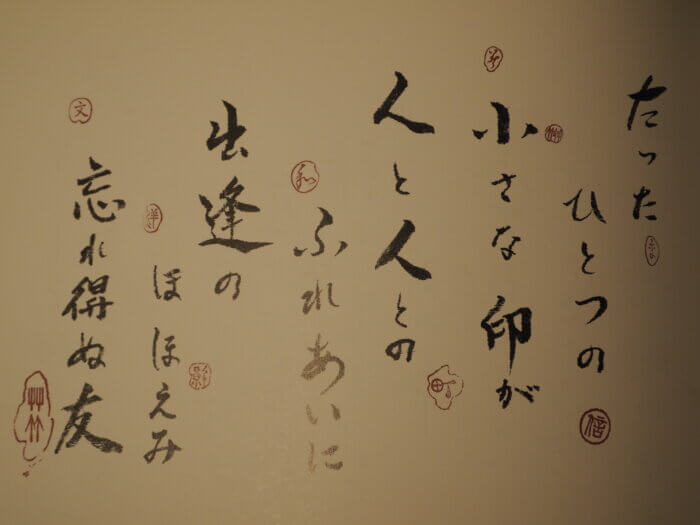 たった
ひとつの
小さな印が
人と人との
ふれあいに
出逢の
ほほえみ
忘れ得ぬ友
信
町
和
文
艸竹